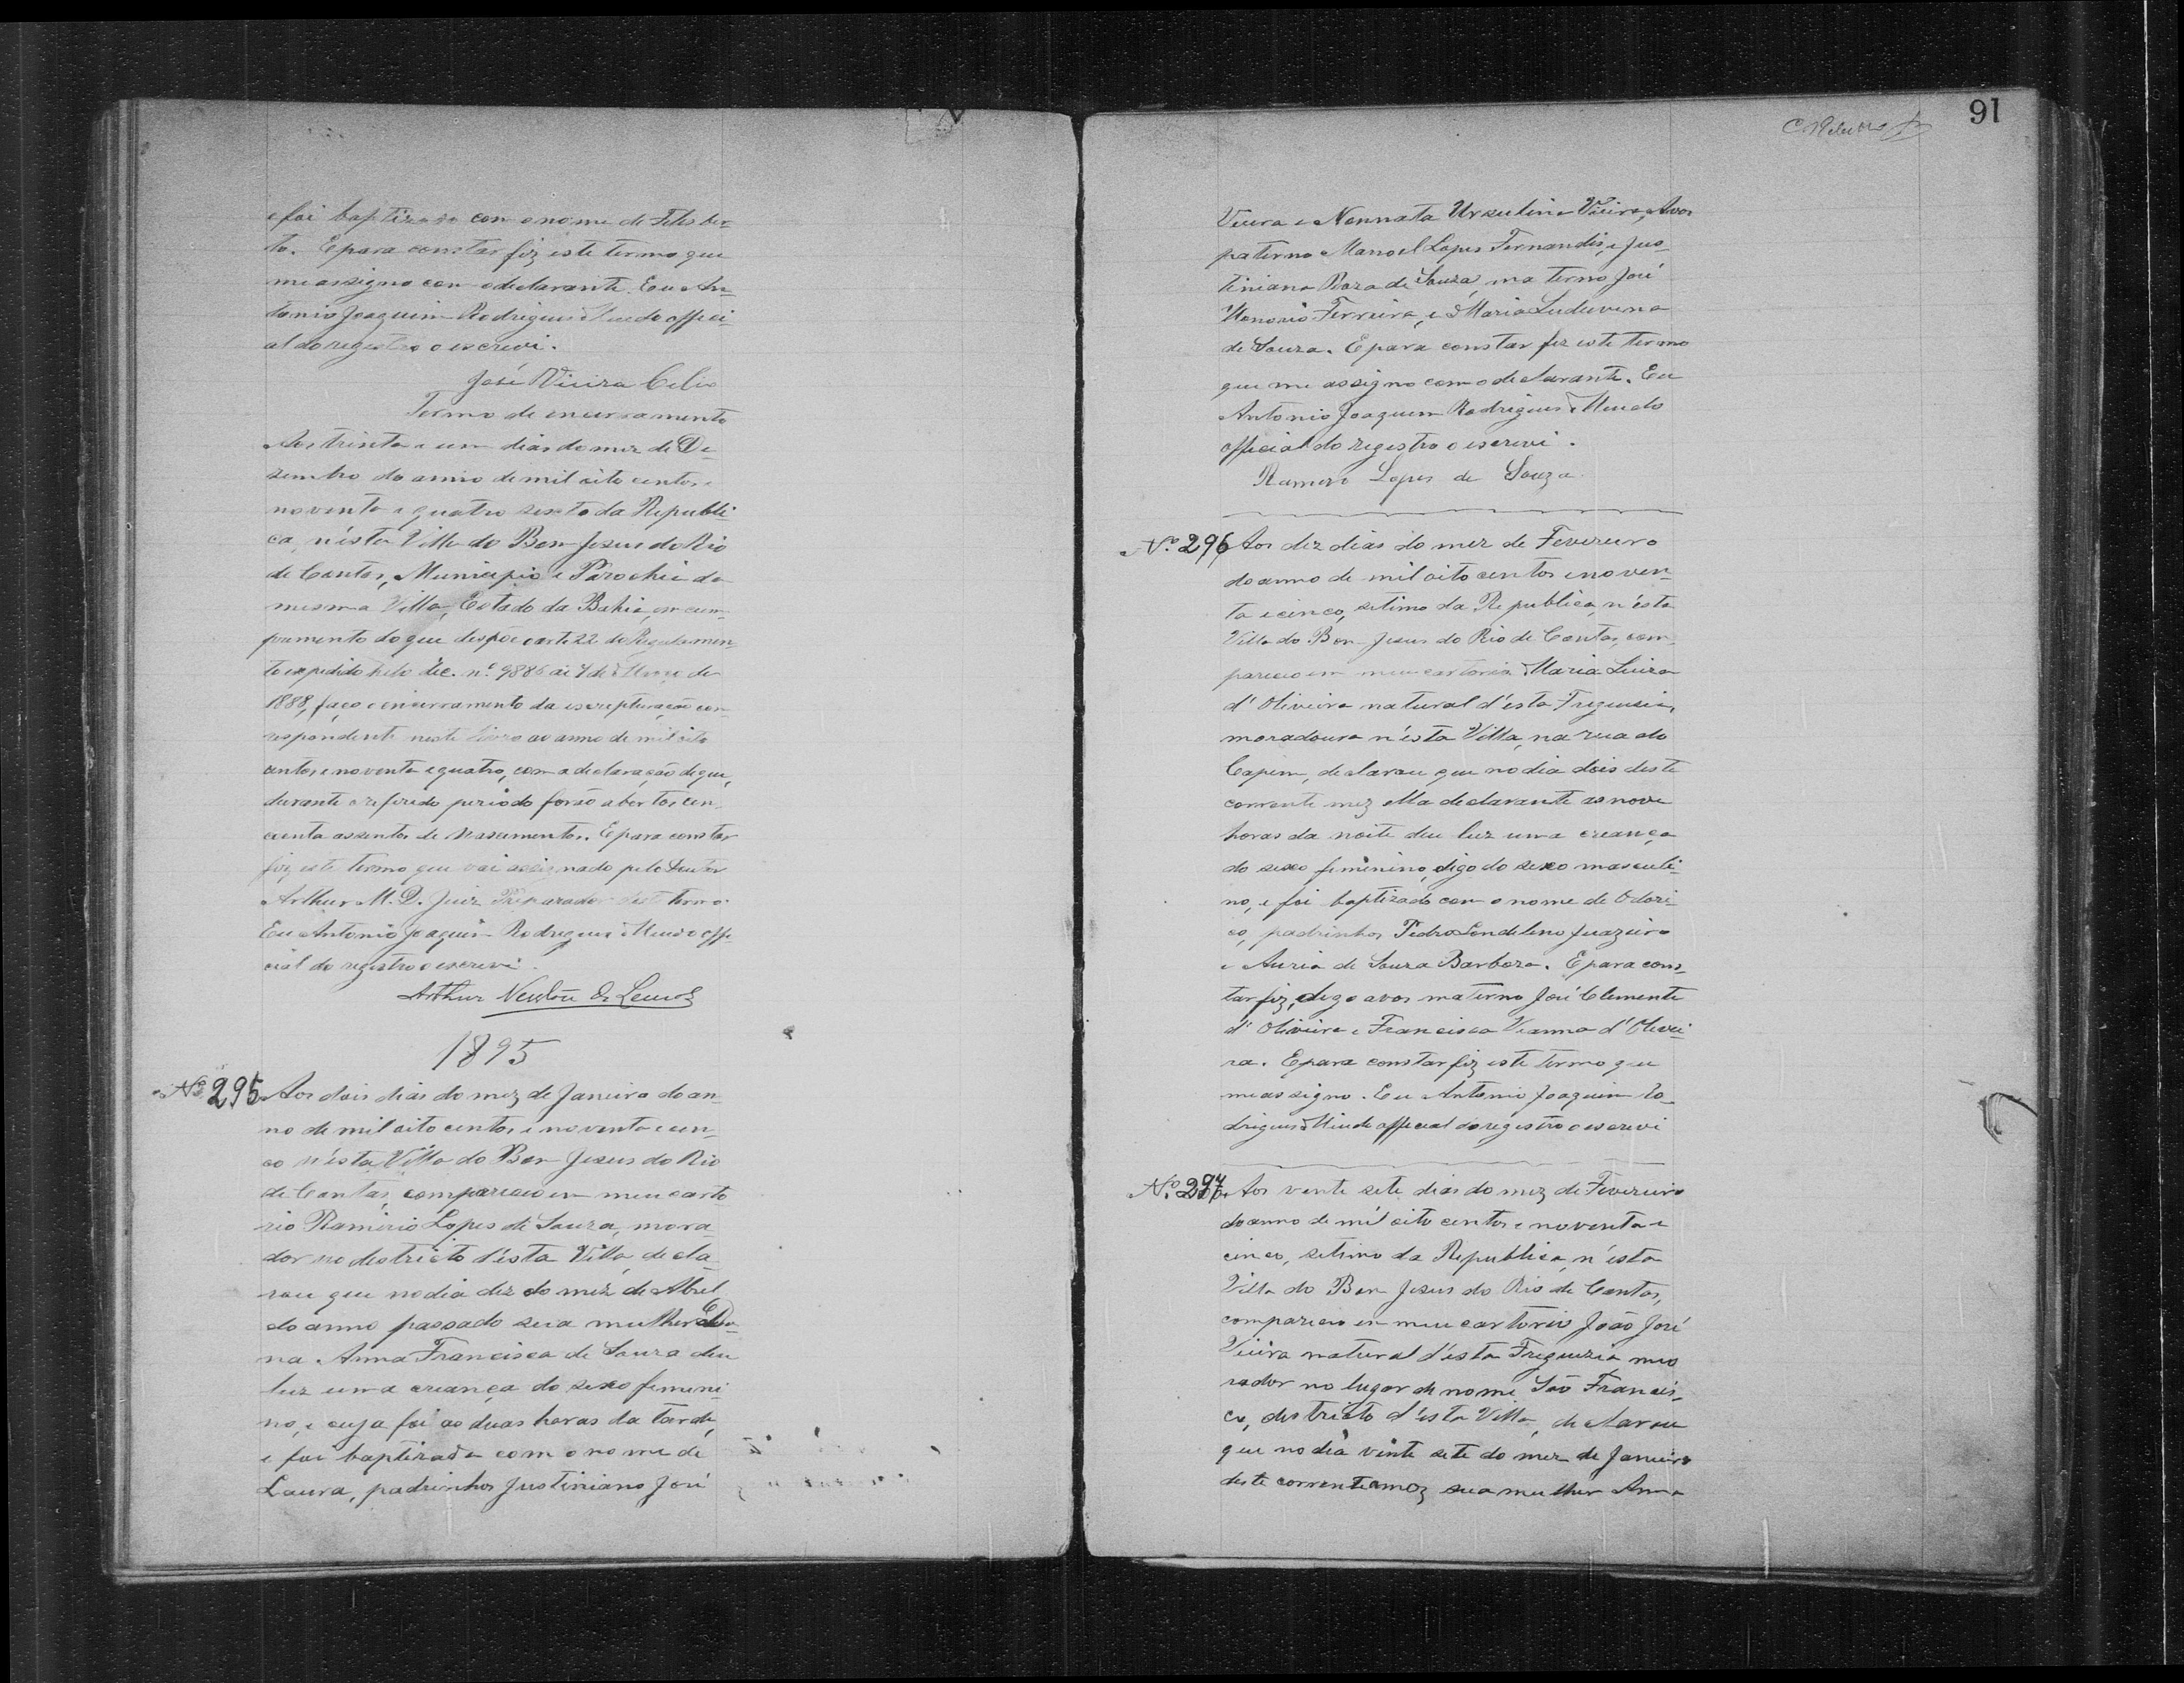 e foi baptizado com o nome de Felisber-
to. E para constar fiz este termo que
me assigno com o declarante. Eu An-
tonio Joaquim Rodrigues Mendo offici-
al do registro o escrevi.
José Vieira
Termo de encerramento
Aos trinta e um dias do mez de De-
zembro do anno de mil oito centos e
noventa e quatro sexto da Republi
ca, n'esta Villa do Bom Jesus do Rio
de Contas, Municipio e Parochia da
mesma Villa, Estado da Bahia, em cum-
primento do que dispõe o art. 22 do Regulamen-
to expedido pelo Dec. nº 9886 de 7 de Março de
1888, faço o encerramento da escripturação cor-
respondente neste livro ao anno de mil oito
centos e noventa e quatro, com a declaração de que,
durante o referido periodo forão abertos cin-
coenta assentos de Nascimentos. E para constar
fiz este termo que vai assignado pelo Doutor
Arthur M. D. Juiz Preparador deste termo.
Eu Antonio Joaquim Rodrigues Mendo offi-
cial do registro o escrevi.
Arthur Newton de Lemos
1895
Nº 295 Aos dois dias do mez de Janeiro do an-
no de mil oito centos e noventa e cin-
co n'esta Villa do Bom Jesus do Rio
de Contas, compareceo em meu carto
rio Ramirio Lopes de Souza, mora-
dor no destricto d'esta Villa, decla-
rou que no dia dez do mez de Abril
do anno passado sua mulher Do-
na Anna Francisca de Souza deu
luz uma creança do sexo femeni-
no, e cuja foi as duas horas da tarde,
e foi baptizada com o nome de
Laura, padrinhos Justiniano José
91
Vieira e Nennata Ursulina Vieira, Avos
paterno Manoel Lopes Fernandis, e Jus-
tiniana Roza de Souza, materno José
Honorio Ferreira, e Maria Luduvina
de Souza. E para constar fiz este termo
que me assigno com o declarante. Eu
Antonio Joaquim Rodrigues Mendo
official do registro o escrevi.
Ramiro Lopes de Souza
Nº 296 Aos dez dias do mez de Fevereiro
do anno de mil oito centos e noven-
ta e cinco, setimo da Republica, n'esta
Villa do Bom Jesus do Rio de Contas, com-
pareceo em meu cartorio Maria Luiza
d'Oliveira natural d'esta Freguesia,
moradoura n'esta Villa, na rua do
Capim, declarou que no dia dois deste
corrente mez ella declarante as nove
horas da noite deu luz uma creança
do sexo feminino, digo do sexo masculi-
no, e foi baptizado com o nome de Odori-
co, padrinhos Pedro Sendeleno Juazeiro
e Auria de Souza Barboza. E para cons-
tar fiz, digo avos materno José Clemente
d'Oliveira e Francisca Vianna d'Olivei-
ra. E para constar fiz este termo que
me assigno. Eu Antonio Joaquim Ro-
drigues Mendo official do registro o escrevi
Nº 297 Aos vente sete dias do mez de Fevereiro
do anno de mil oito centos e noventa e
cinco, setimo da Republica, n'esta
Villa do Bom Jesus do Rio de Contas,
compareceo em meu cartorio João José
Vieira natural d'esta Freguezia, mo
rador no lugar de nome São Francis-
co, destricto d'esta Villa, declarou
que no dia vinte sete do mez de Janeiro
deste corrente mez sua mulher Anna